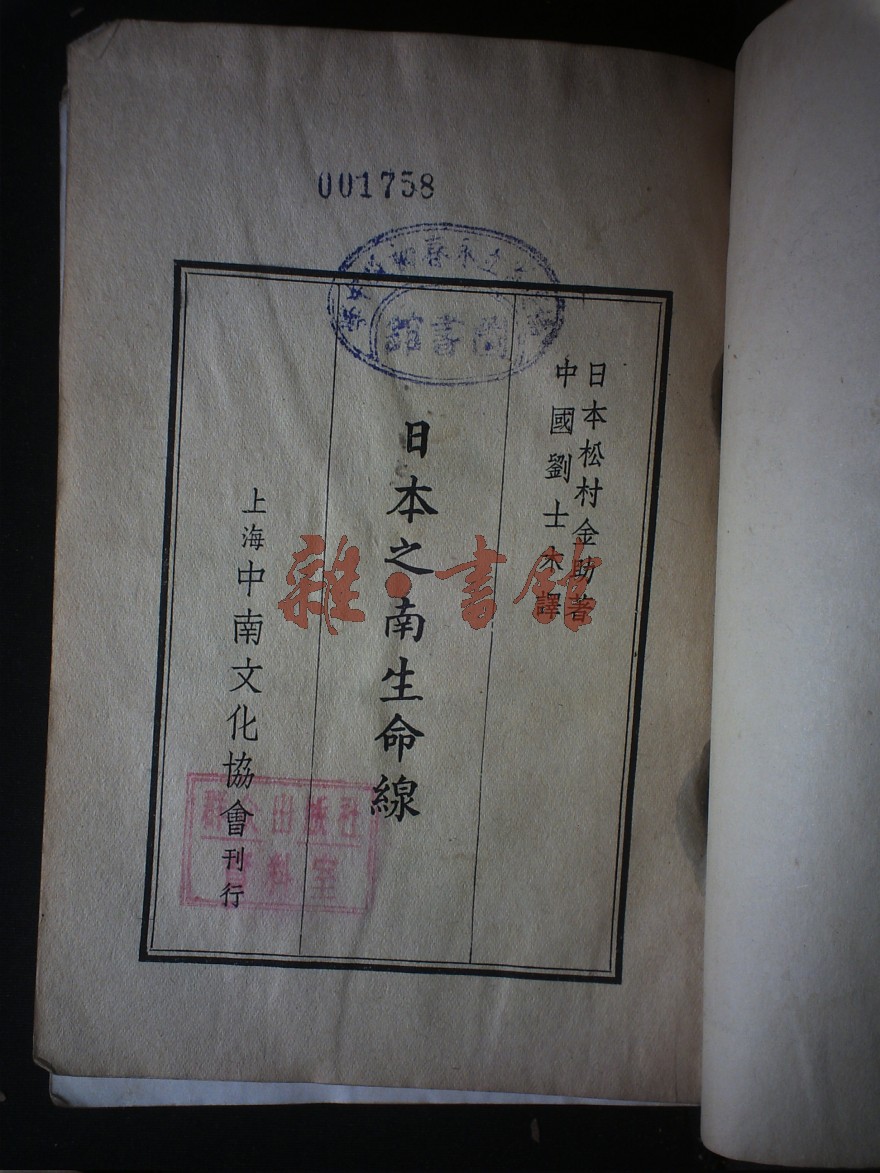 001758
圖書館
日本松村金助著
中國劉士木譯
日本之南生命線
上海中南文化協會刊行
群众出版社
資料室
雜·書館